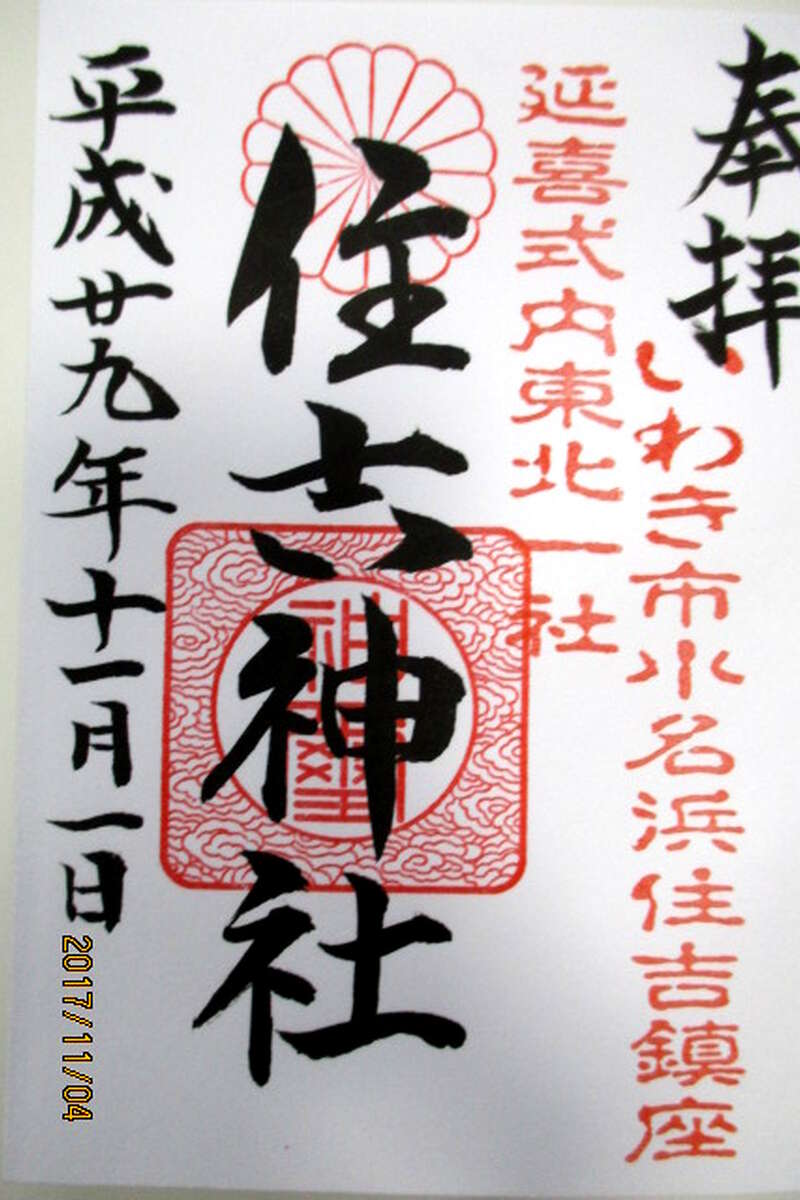 奉拝
いわき市小名浜住吉鎮座
延喜式内東北一社
住吉神社
平成廿九年十一月一日
2017/11/04